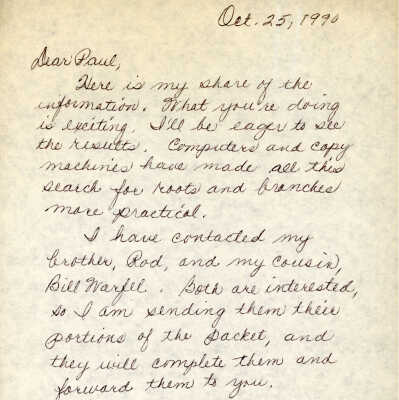 Oct. 25, 1990
Dear Paul,
Here is my share of the
information. What you're doing
is exciting. I'll be eager to see
the results. Computers and copy
machines have made all this
search for roots and branches
more practical.
I have contacted my
brother, Rod, and my cousin,
Bill Warfel. Both are interested,
so I am sending them their
portions of the packet, and
they will complete them and
forward them to you.